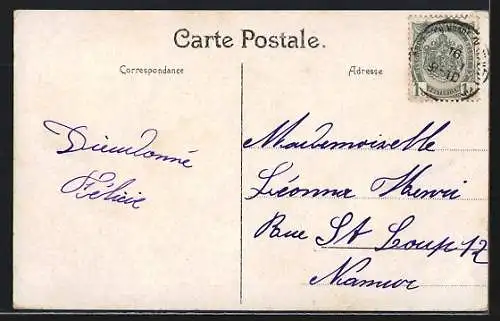 Carte Postale.
Correspondance
Adresse
1
1
Dieudonné
Félicie
Mademoiselle
Léonna Henri
Rue St Loup 12
Namur